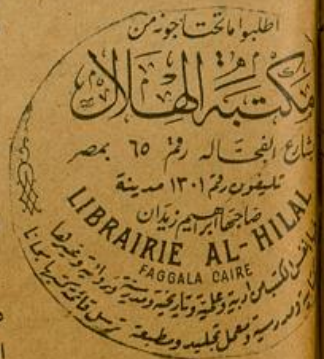 اطلبوا ما تحتاجونه من
مكتبة الهلال
بشارع الفجاله رقم ٦٥ بمصر
تليفون رقم ١٣٠١ مدينة
صاحبها ابراهيم زيدان
LIBRAIRIE AL-HILAL
FAGGALA CAIRE
الكتب من ادبية وعلمية وتاريخية ومدرسية ودينية وغيرها
ومدرسية ومعمل تجليد ومطبعة ترسل قائمة كتبها مجانا